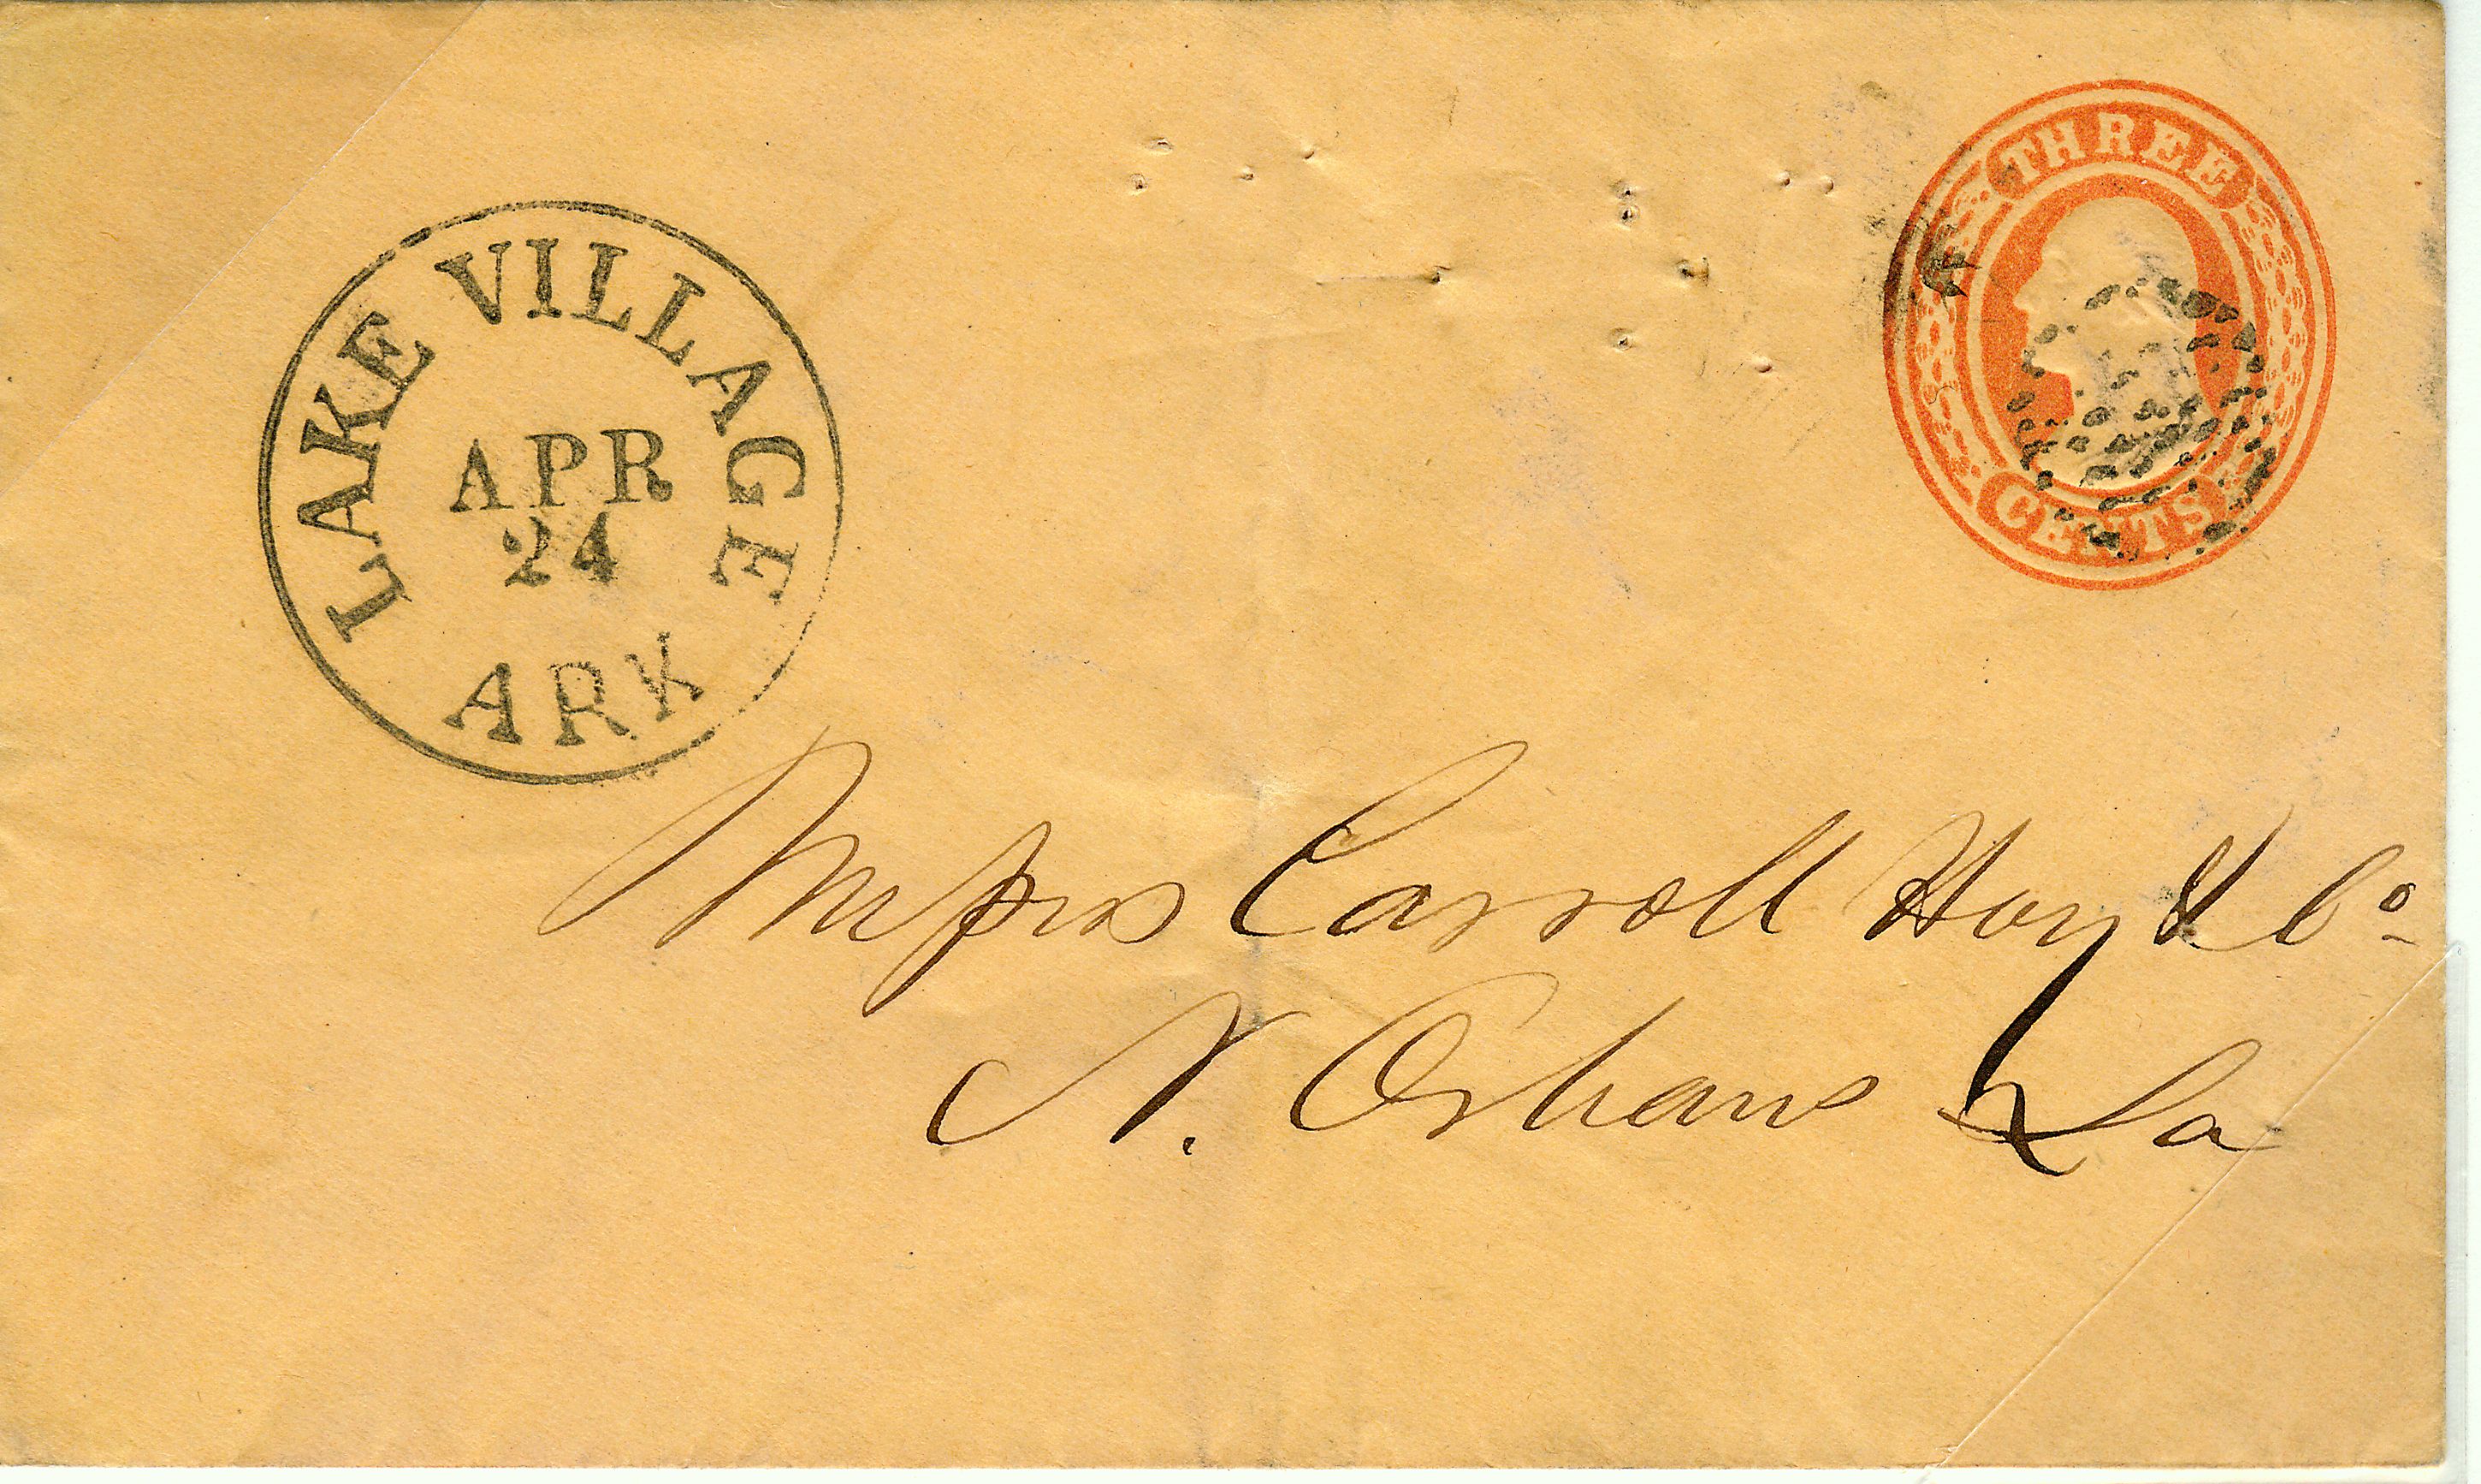 LAKE VILLAGE
APR
24
ARK
THREE
CENTS
Messrs Carroll Hoy & Co
N. Orleans La